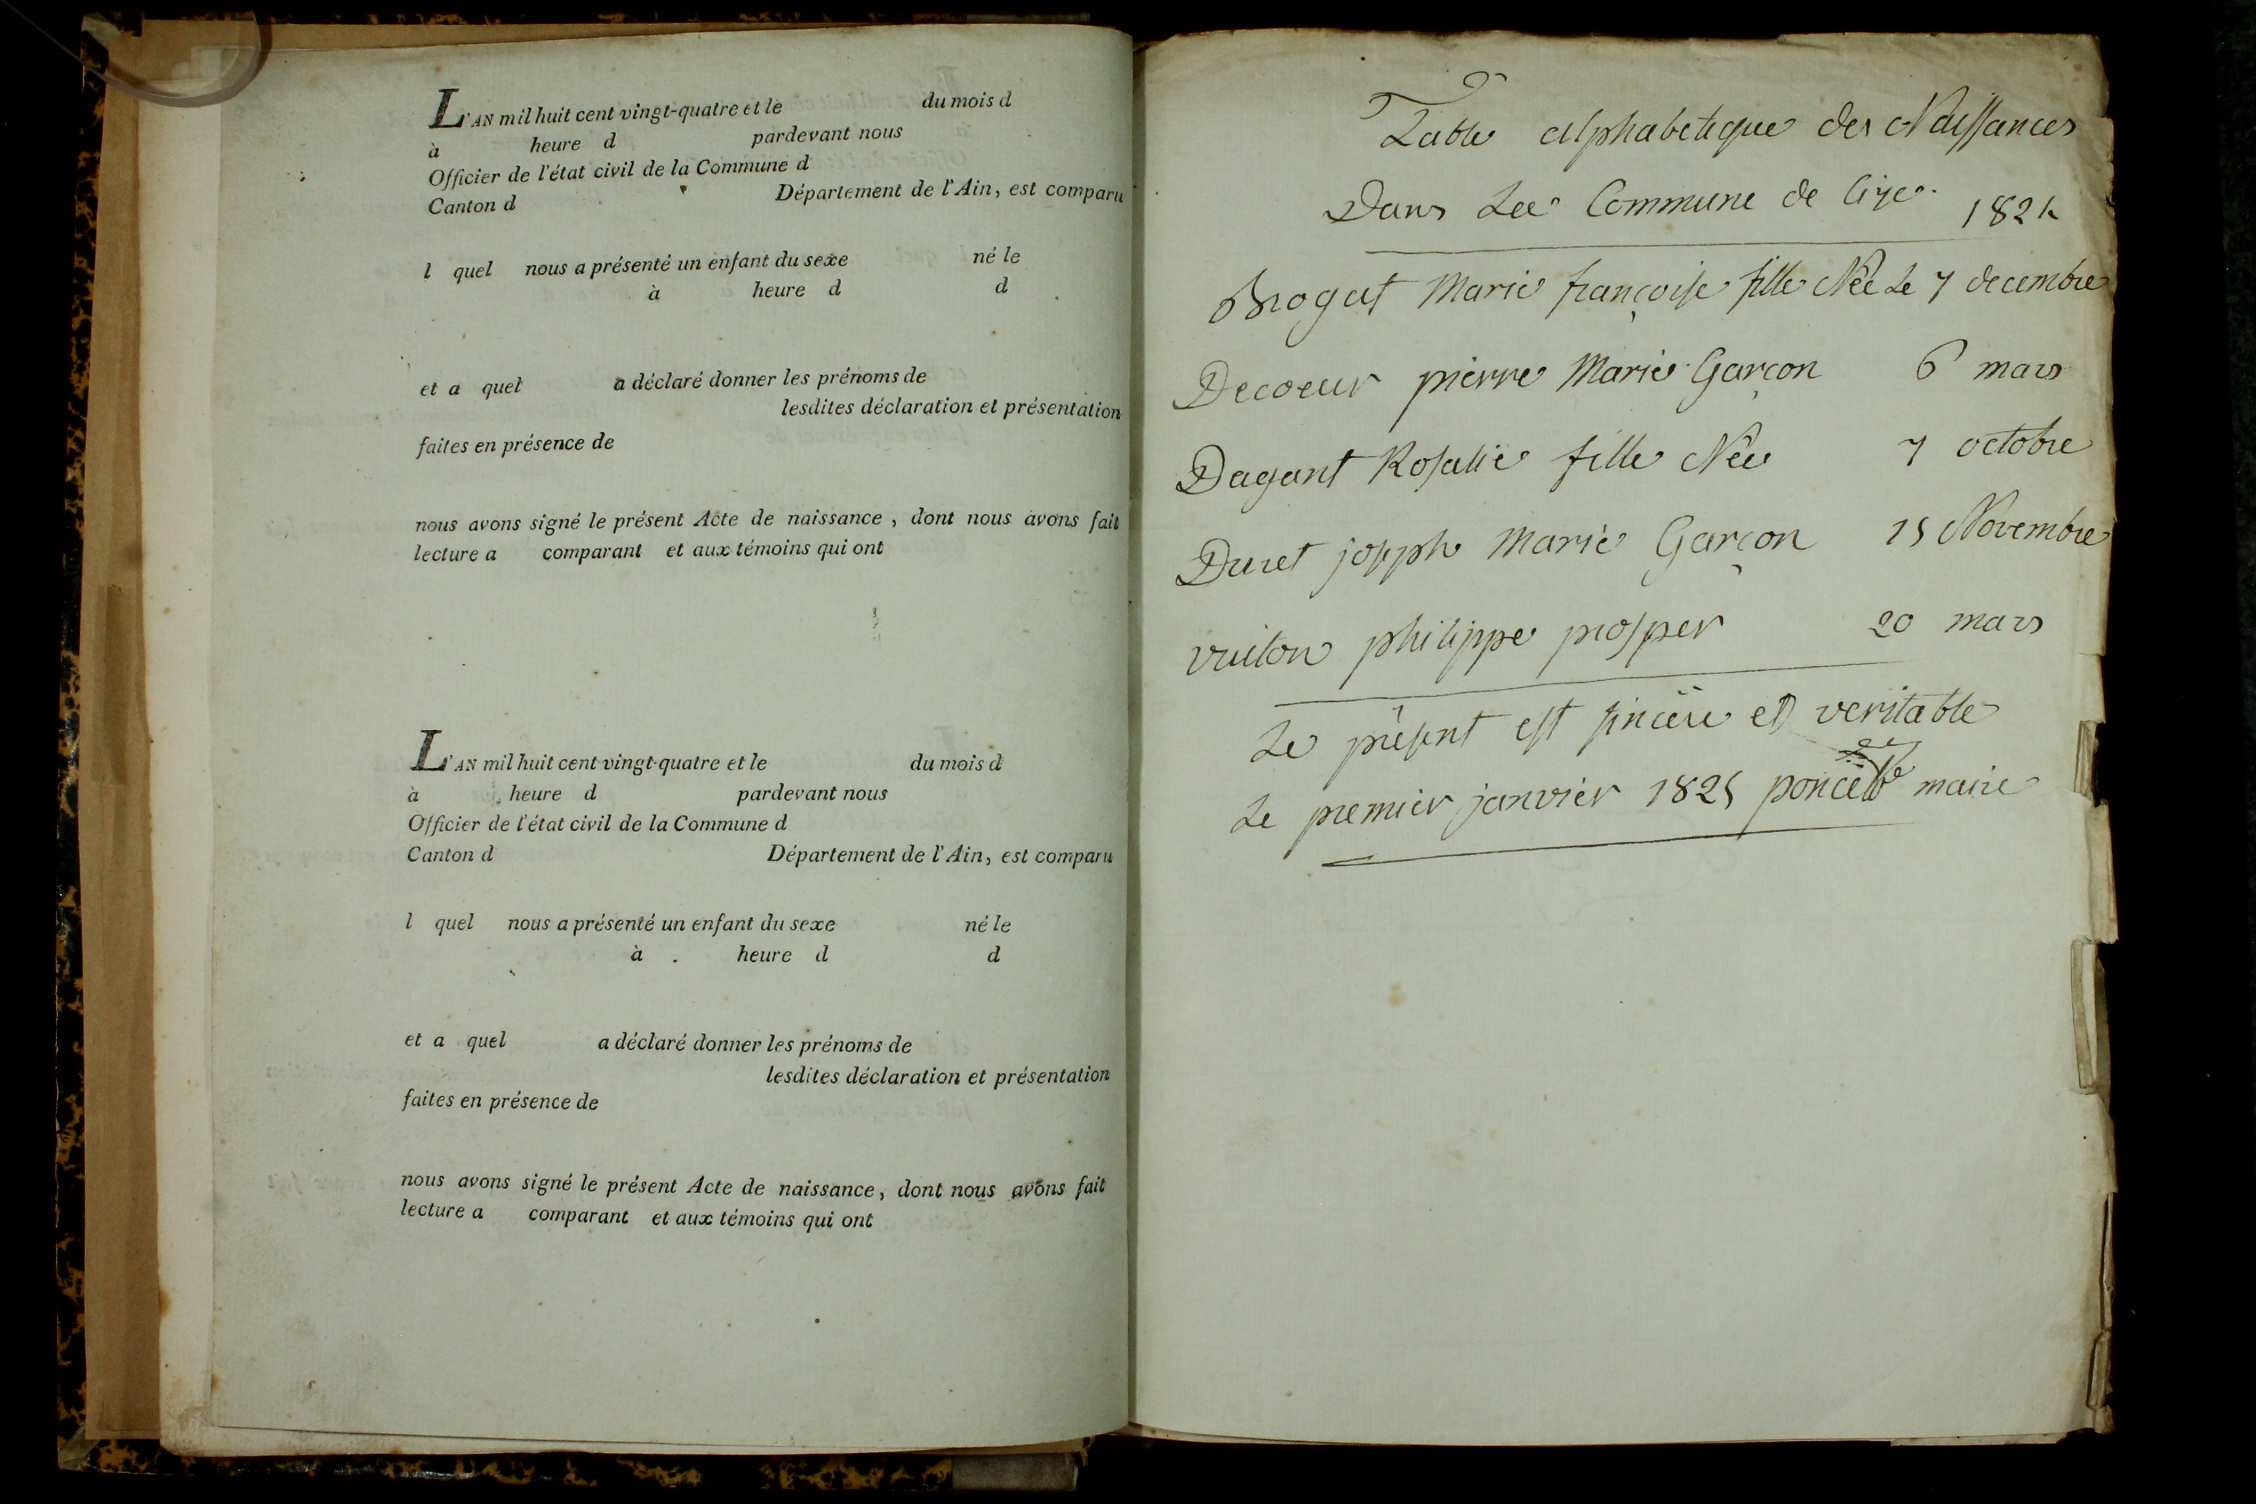 L'AN mil huit cent vingt-quatre et le du mois d
à heure d pardevant nous
Officier de l'état civil de la Commune d
Canton d Département de l'Ain, est comparu
l quel nous a présenté un enfant du sexe né le
à heure d d
et a quel a déclaré donner les prénoms de
lesdites déclaration et présentation
faites en présence de
nous avons signé le présent Acte de naissance, dont nous avons fait
lecture a comparant et aux témoins qui ont
L'AN mil huit cent vingt-quatre et le du mois d
à heure d pardevant nous
Officier de l'état civil de la Commune d
Canton d Département de l'Ain, est comparu
l quel nous a présenté un enfant du sexe né le
à heure d d
et a quel a déclaré donner les prénoms de
lesdites déclaration et présentation
faites en présence de
nous avons signé le présent Acte de naissance, dont nous avons fait
lecture a comparant et aux témoins qui ont
Table alphabetique des Naissances
Dans La Commune de Cize 1824
Brogat Marie françoise fille Née Le 7 decembre
Decoeur pierre Marie Garçon 6 mars
Dagant Rosalie fille Née 7 octobre
Duret joseph Marie Garçon 15 Novembre
vuiton philippe prosper 20 mars
Le présent est sincère et veritable
Le premier janvier 1825 poncet maire